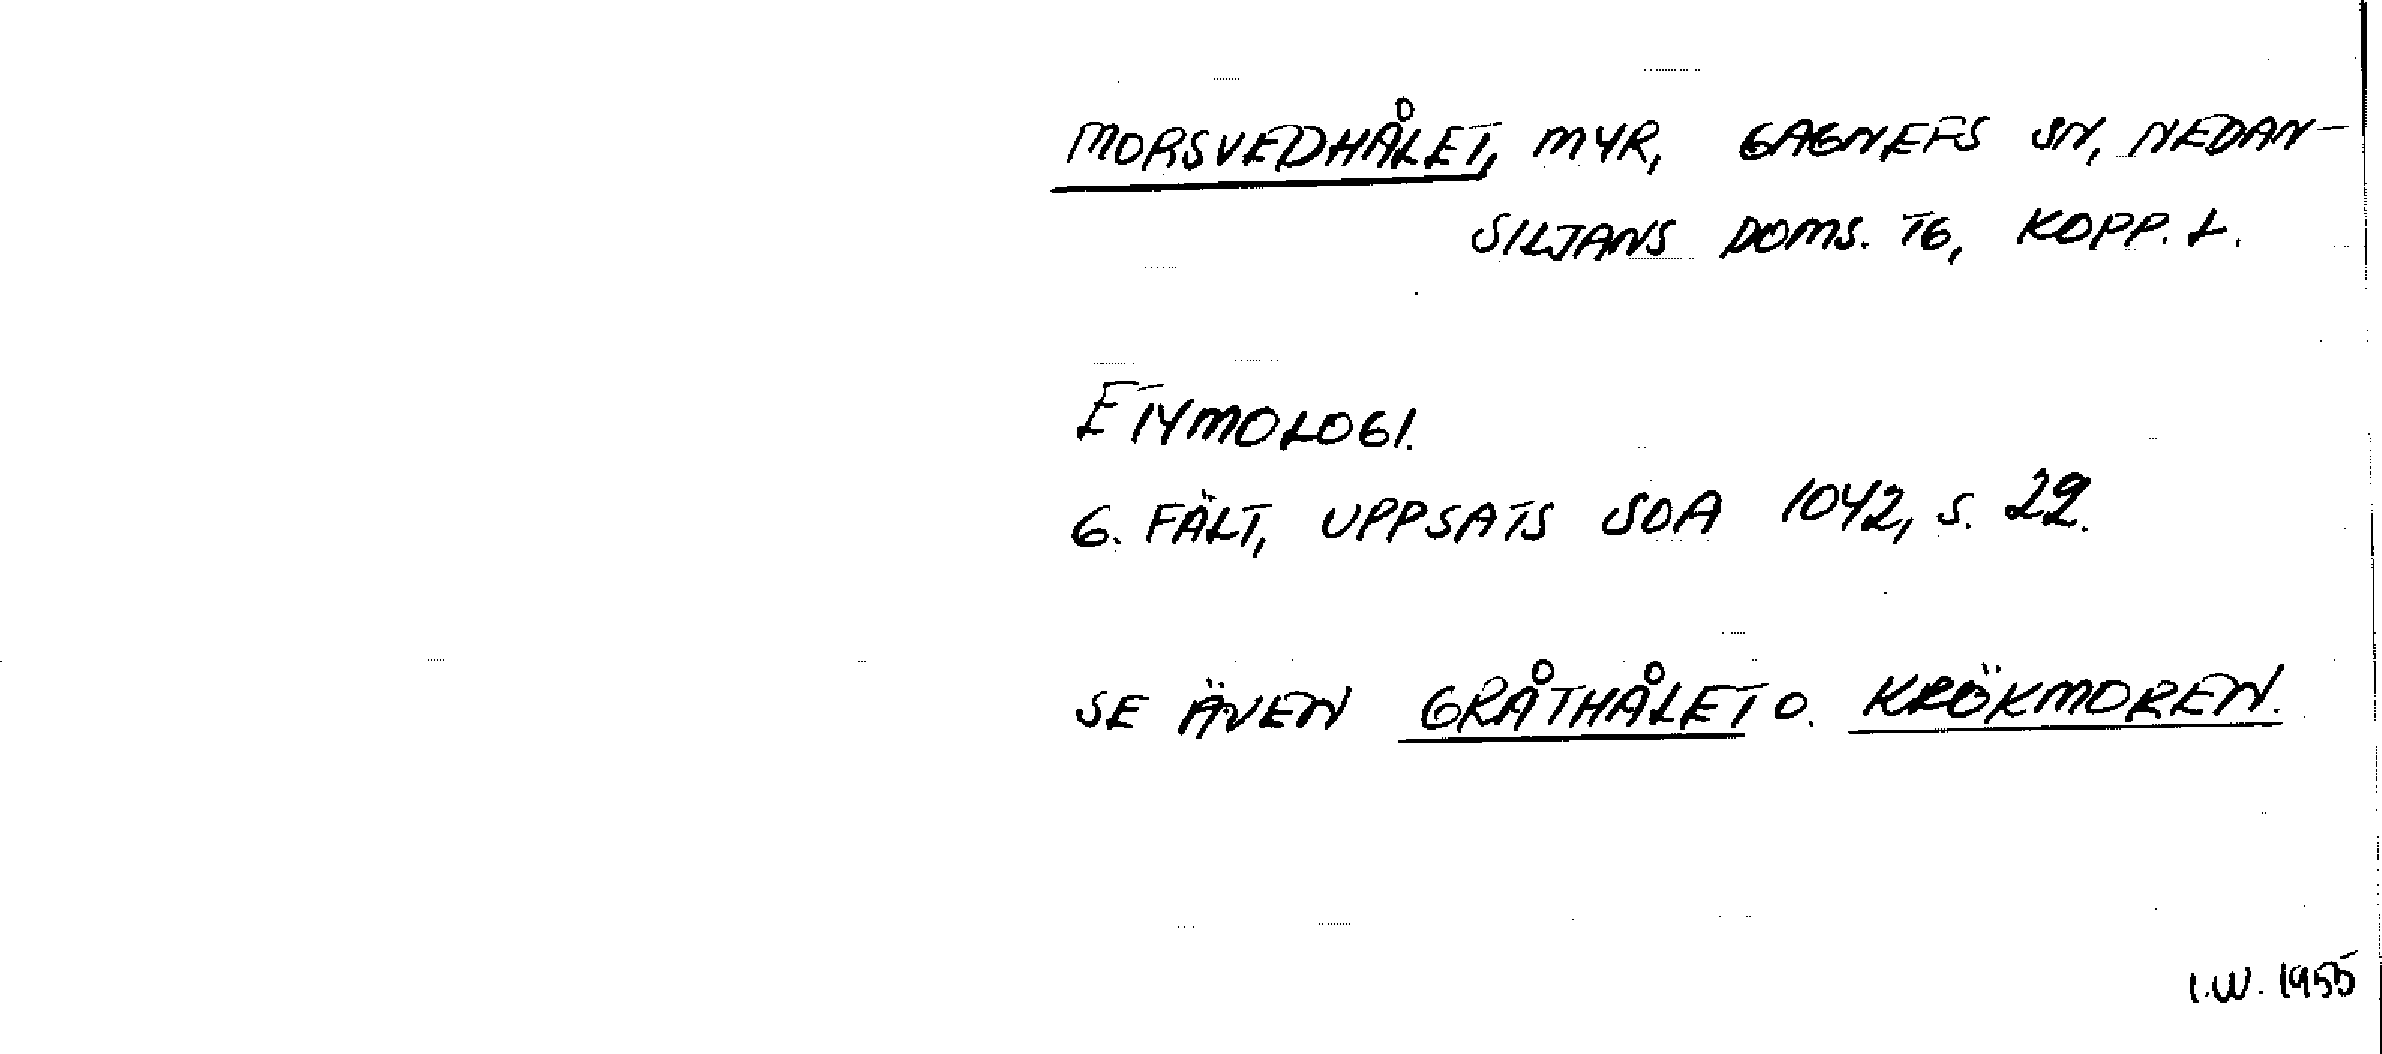 MORSVEDHÅLET, MYR, GAGNEFS SN, NEDAN-
SILJANS DOMS. TG, KOPP. L.
ETYMOLOGI.
G. FÄLT, UPPSATS SOA 1042, S. 22.
SE ÄVEN GRÅTHÅLET O. KRÖKMOREN.
I.W. 1955